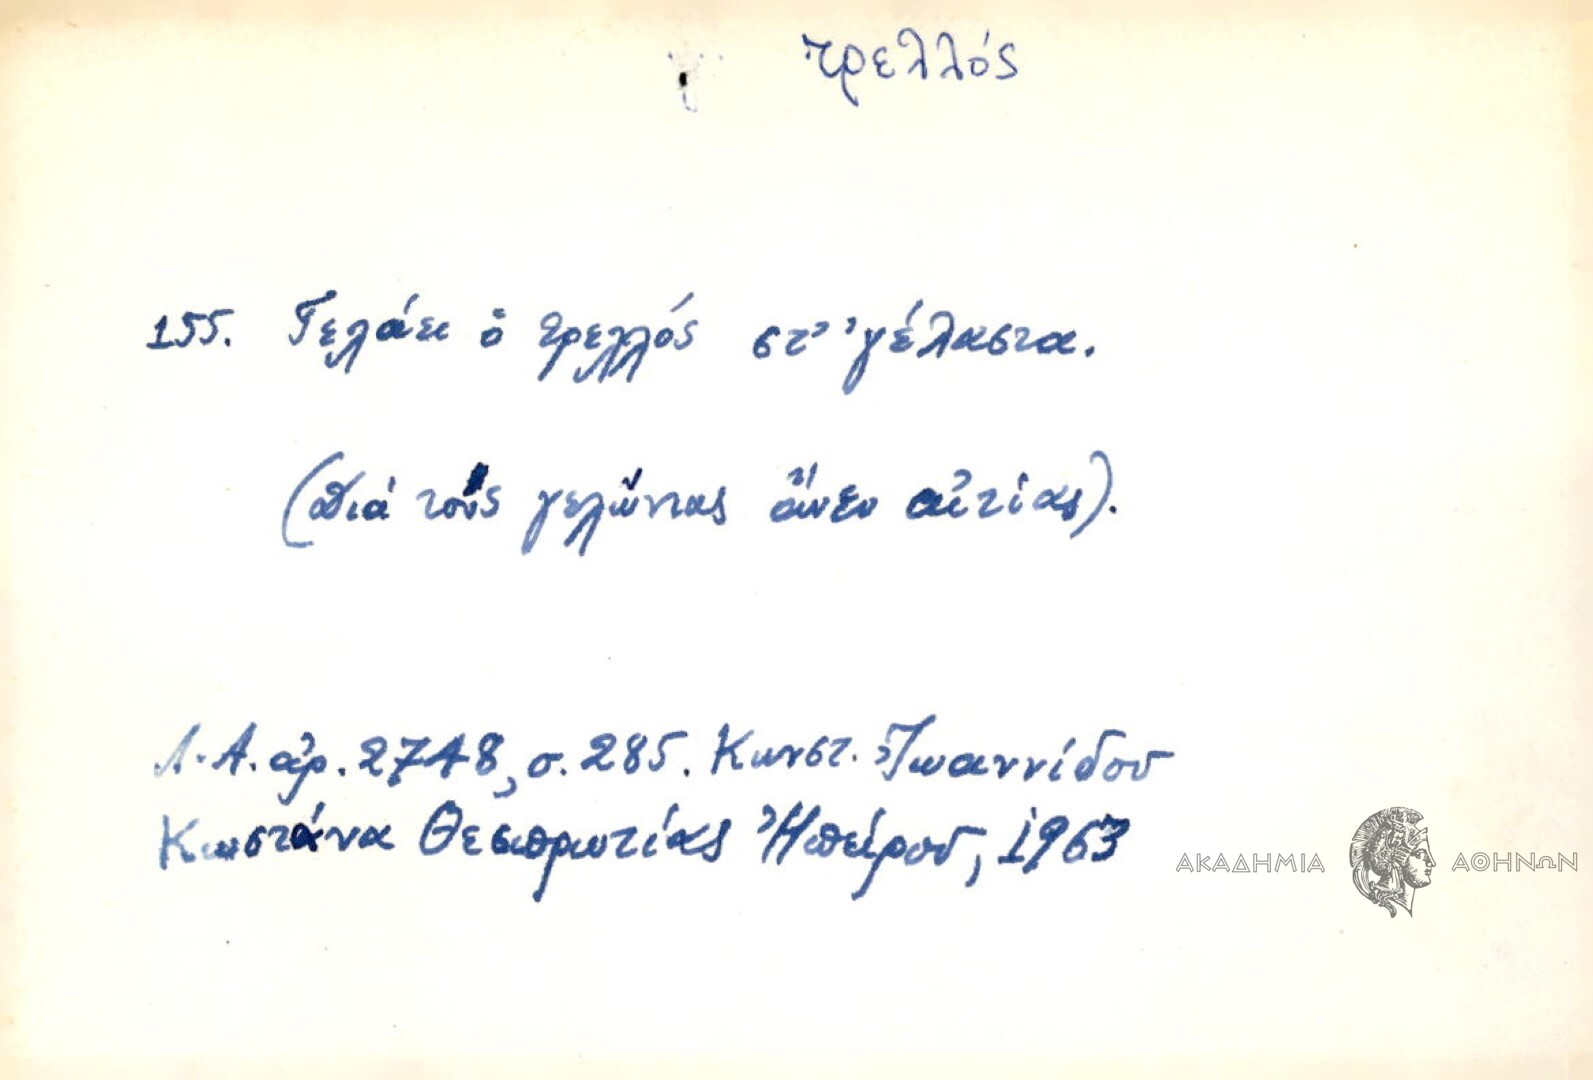 τρελλός
155. Γελάει ὁ τρελλός στ' 'γέλαστα.
(Διά τούς γελῶντας ἄνευ αἰτίας).
Λ.Α. ἀρ. 2748, σ. 285. Κωνστ. Ἰωαννίδου
Κωστάνα Θεσπρωτίας Ἠπείρου, 1963
ΑΚΑΔΗΜΙΑ ΑΘΗΝΩΝ